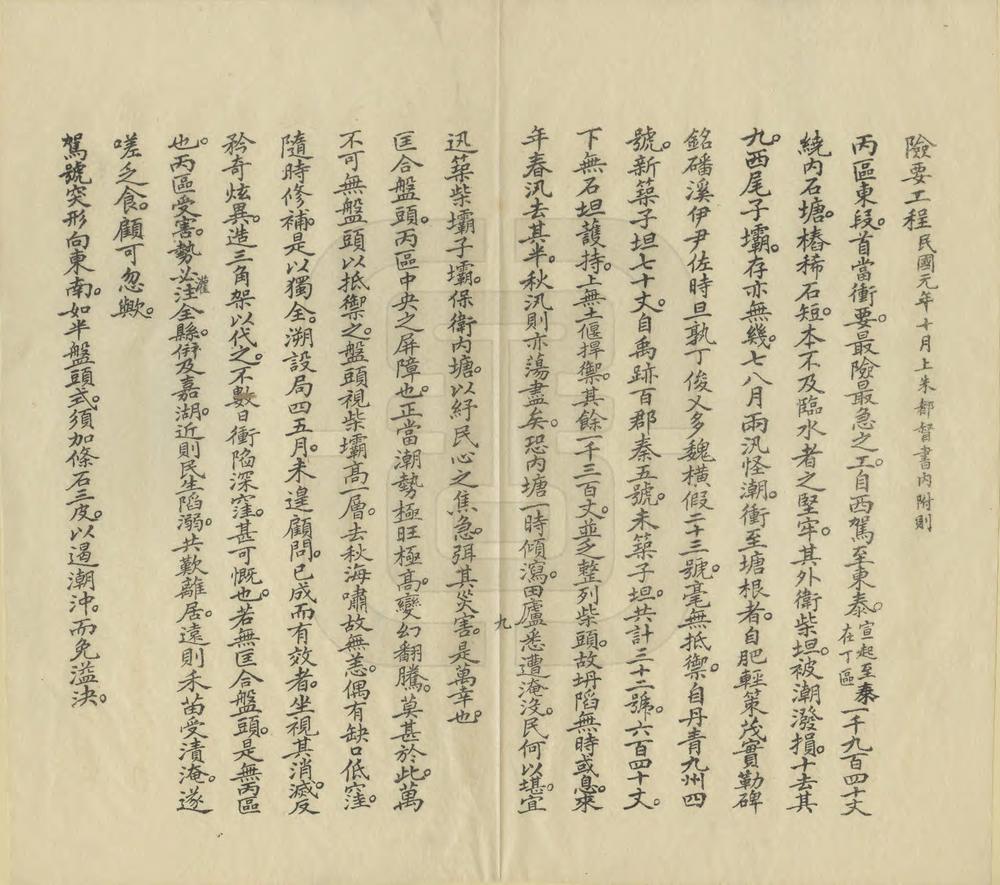 險要工程民國元年十月上朱都督書內附則
丙區東段。首當衝要。最險最急之工。自西駕至東泰。宣起至泰在丁區一千九百四十丈
繞內石塘。樁稀石短。本不及臨水者之堅牢。其外衛柴坦。被潮潑損。十去其
九。西尾子壩。存亦無幾。七八月兩汛怪潮。衝至塘根者。自肥輕策茂實勒碑
銘磻溪伊尹佐時旦孰丁俊乂多魏橫假二十三號。毫無抵禦。自丹青九州四
號。新築子坦七十丈。自禹跡百郡秦五號。未築子坦。共計三十二號。六百四十丈。
下無石坦護持。上無土偃捍禦。其餘一千三百丈。並乏整列柴頭。故坍陷無時或息。來
年春汛去其半。秋汛則亦蕩盡矣。恐內塘一時傾瀉。田廬悉遭淹沒。民何以堪。宜
九
迅築柴壩子壩。保衛內塘。以紓民心之焦急。弭其災害。是萬幸也。
匡合盤頭。丙區中央之屏障也。正當潮勢極旺極高。變幻翻騰。莫甚於此。萬
不可無盤頭以抵禦之。盤頭視柴壩高一層。去秋海嘯故無恙。偶有缺口低窪。
隨時修補。是以獨全。溯設局四五月。未遑顧問。已成而有效者。坐視其消滅。反
矜奇炫異。造三角架以代之。不數日衝陷深窪。甚可慨也。若無匡合盤頭。是無丙區
也。丙區受害。勢必灌注全縣。併及嘉湖。近則民生陷溺。共歎離居。遠則禾苗受漬淹。遂
嗟乏食。顧可忽歟。
駕號突形向東南。如半盤頭式。須加條石三皮。以遏潮沖。而免溢決。